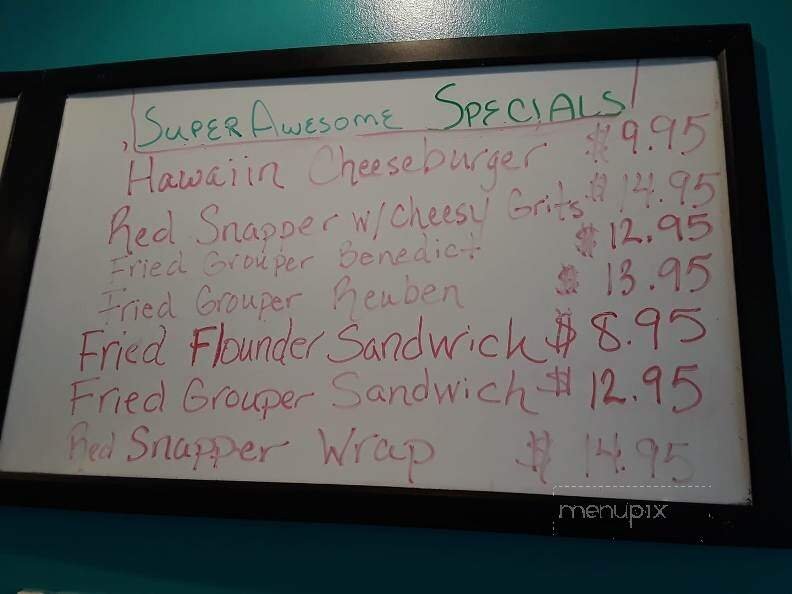 Super Awesome Specials
Hawaiin Cheeseburger $9.95
Red Snapper w/cheesy Grits $14.95
Fried Grouper Benedict $12.95
Fried Grouper Reuben $13.95
Fried Flounder Sandwich $8.95
Fried Grouper Sandwich $12.95
Red Snapper Wrap $14.95
menupix